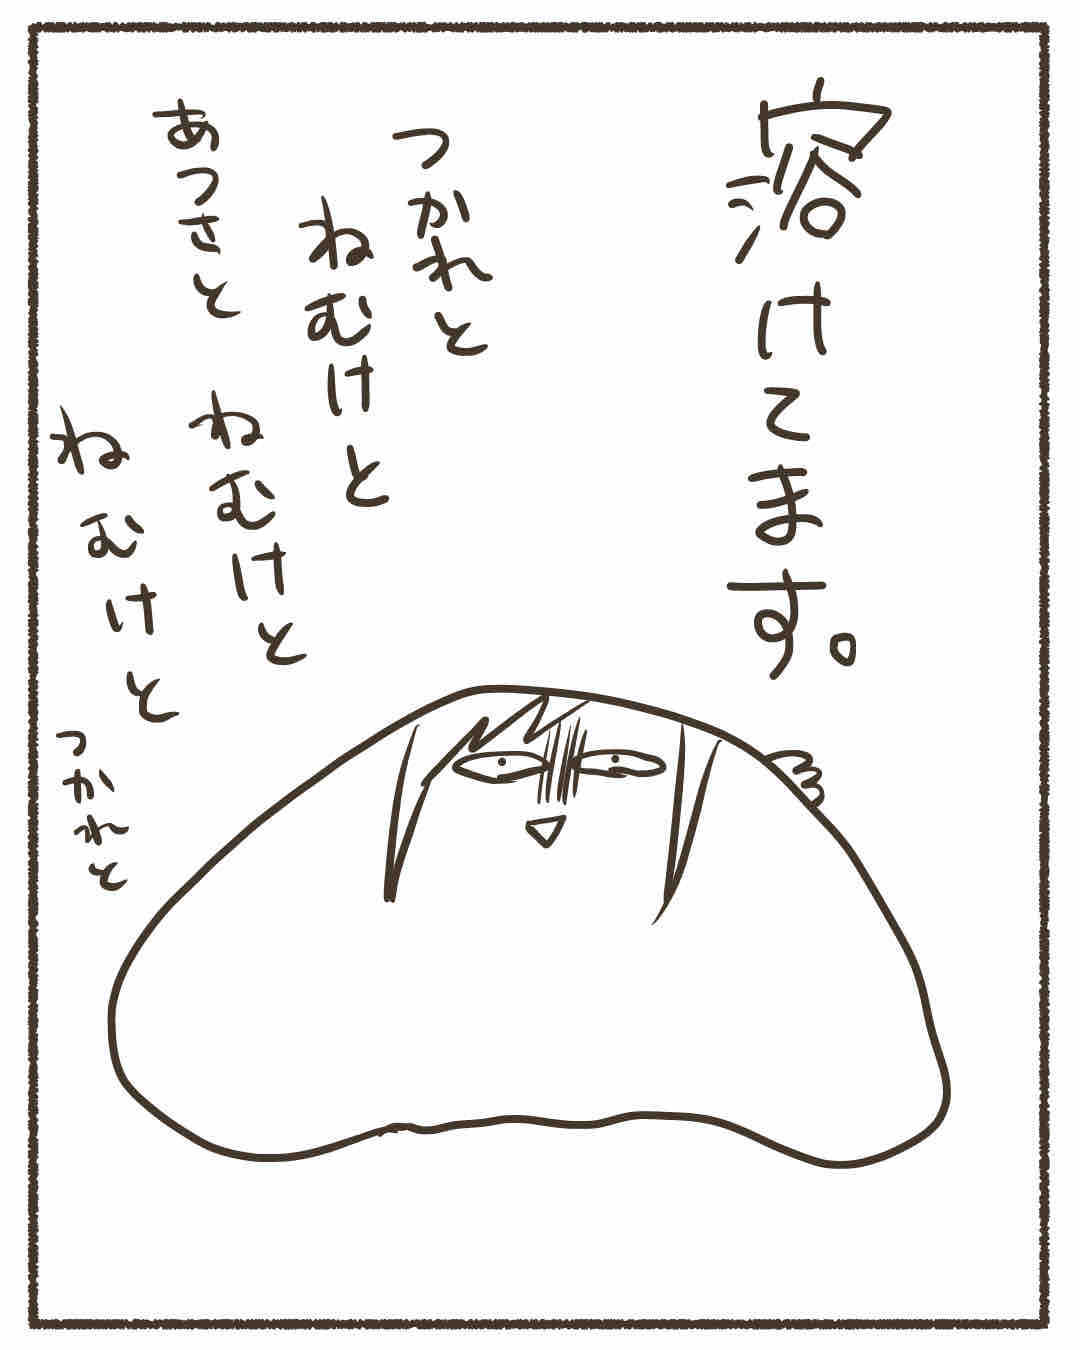 溶けてます。
つかれと
ねむけと
あつさと
ねむけと
ねむけと
つかれと